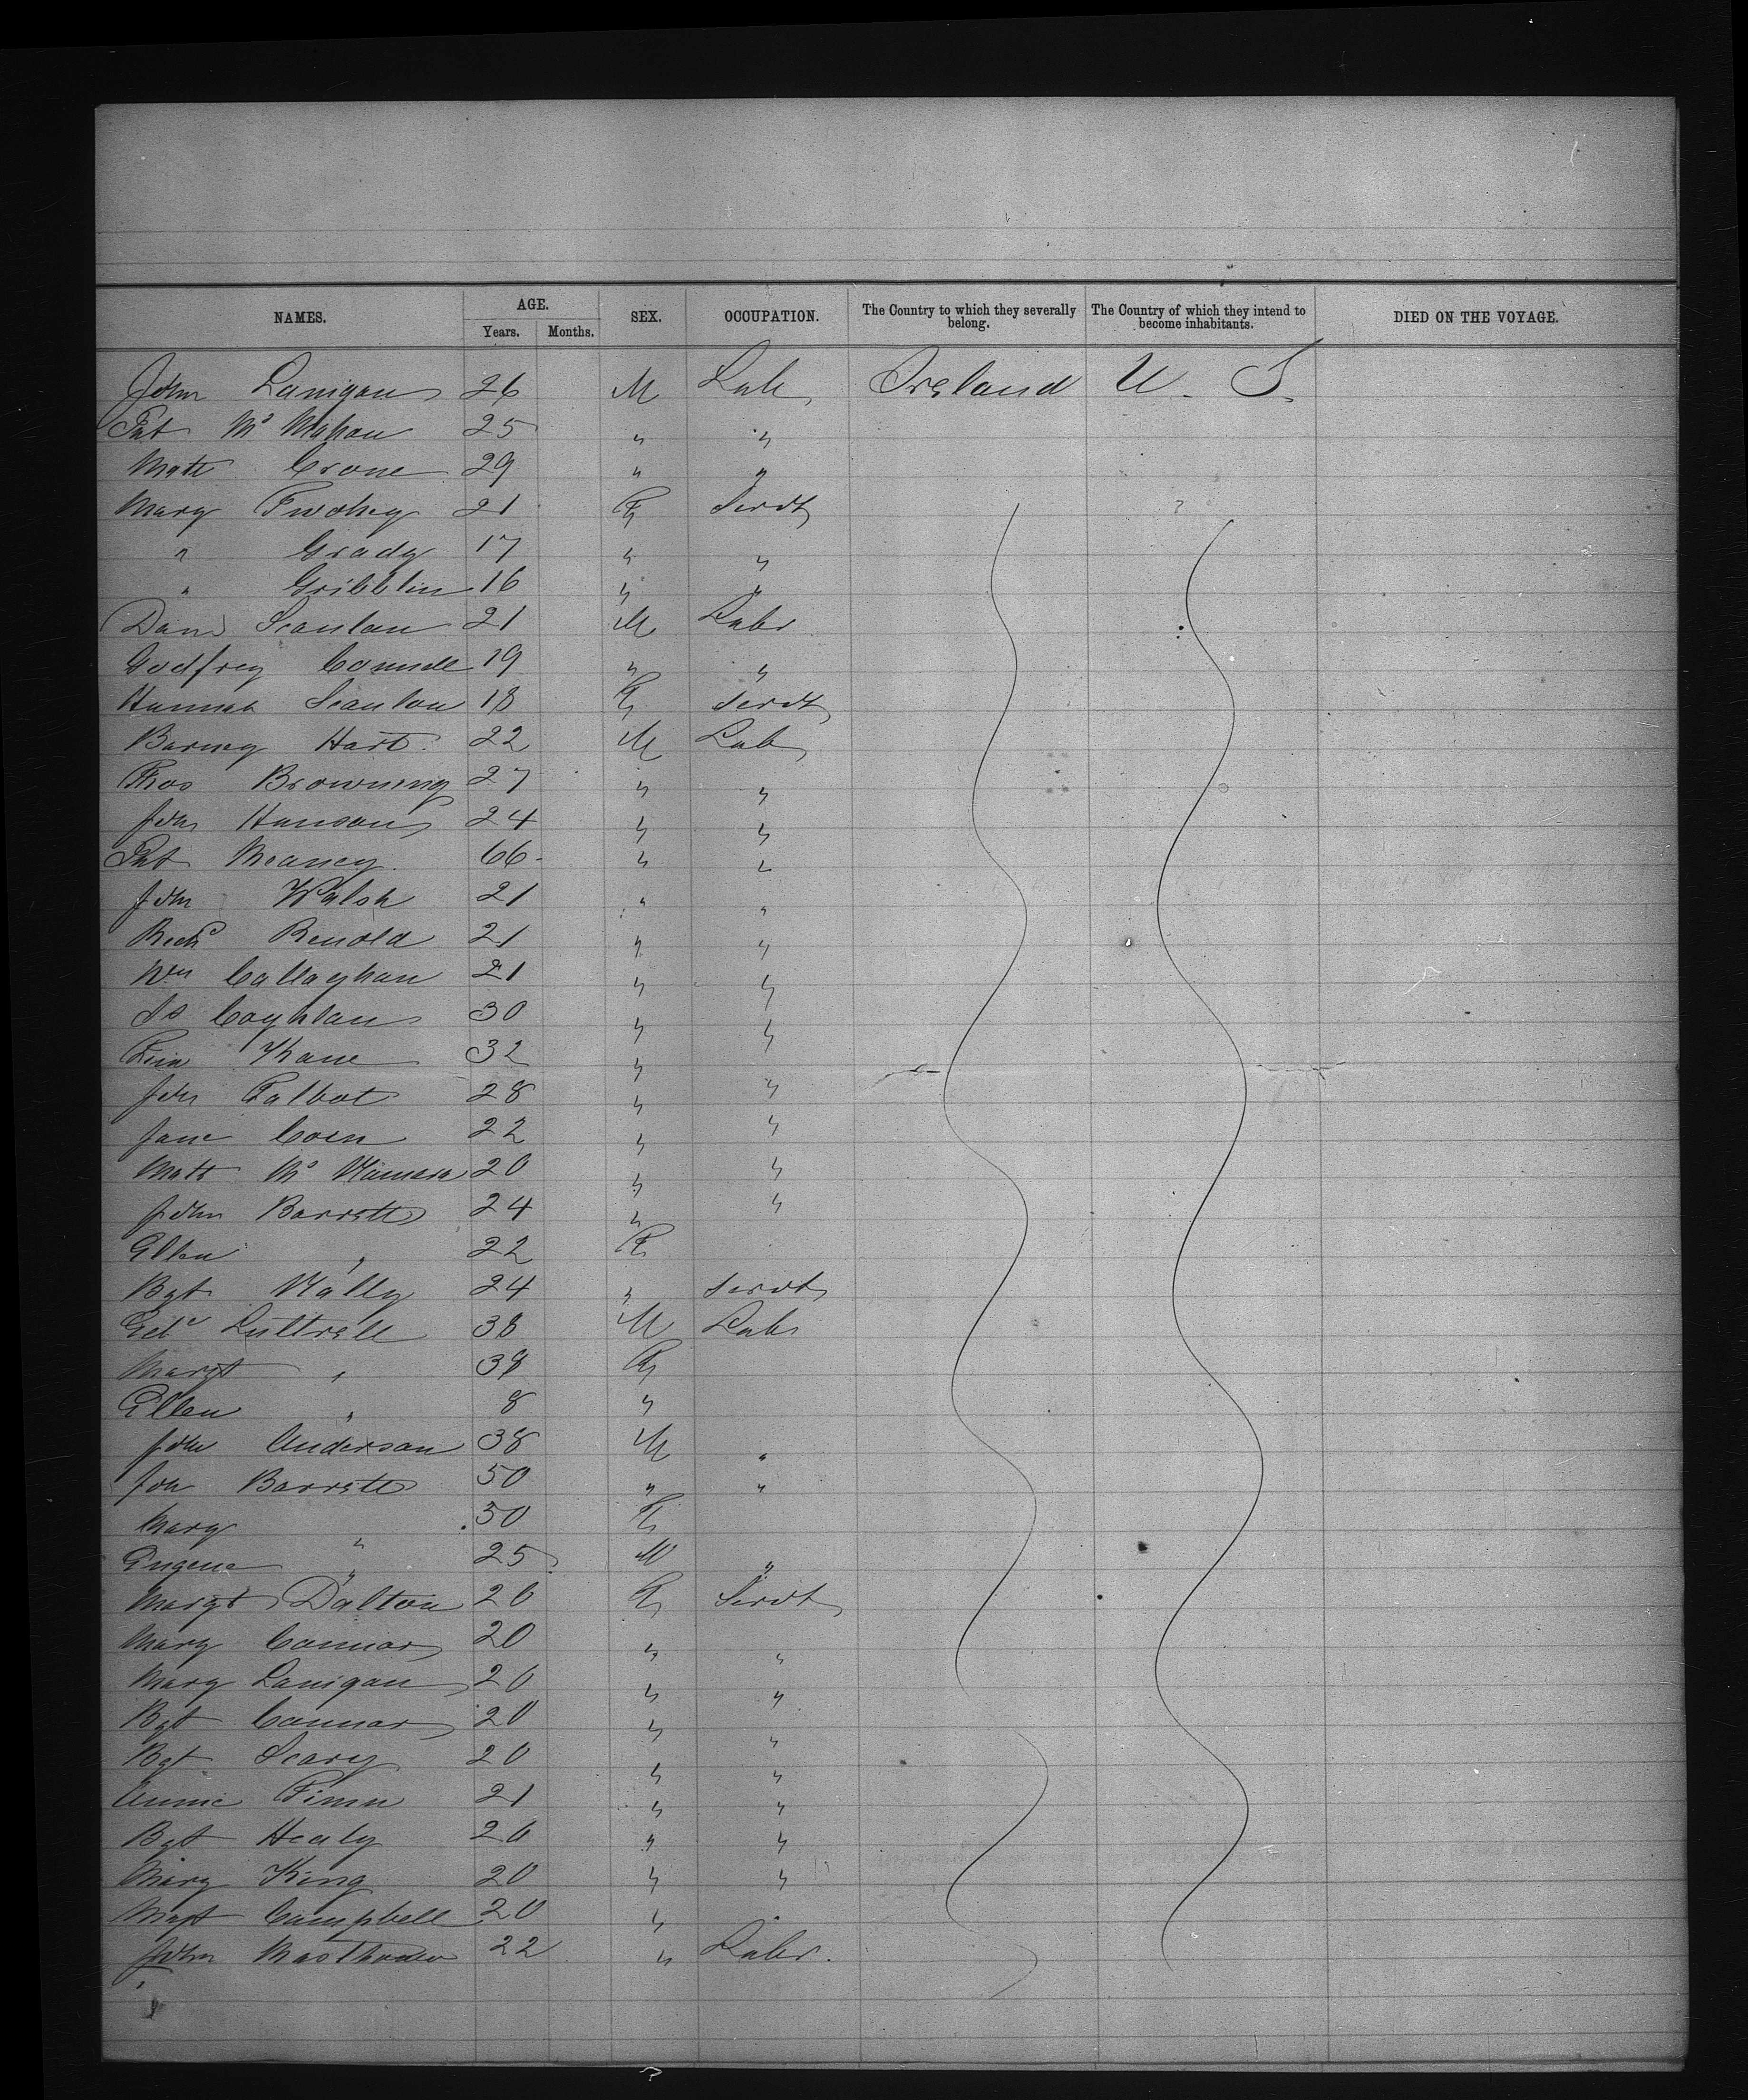 NAMES. AGE. SEX. OCCUPATION. The Country to which they severally belong. The Country of which they intend to become inhabitants. DIED ON THE VOYAGE.
Years. Months.
John Lanigan 26 M Lab Ireland U. S.
Pat Mc Mahon 25 " "
Matt Crone 29 " "
Mary Twohey 21 F Servt
" Grady 17 " "
" Gribblin 16 " "
Danl Scanlan 21 M Labr
Godfrey 19 " "
Hannah Scanlon 18 F Servt
Barney Hart 22 M Lab
Thos Browning 27 " "
John Hanson 24 " "
Pat Meaney 66 " "
John Walsh 21 " "
Richd Renold 21 " "
Wm Callaghan 21 " "
Coghlan 30 " "
Kane 32 " "
John Talbot 28 " "
Jane Coen 22 " "
Matt Mc Namara 20 " "
John Barrett 24 " "
Ellen " 22 F
Bgt Nally 24 " Servt
Edd Luttrell 38 M Lab
Margt " 38 F
Ellen " 8 "
John Anderson 38 M "
John Barrett 50 " "
Mary " 50 F
Eugene " 25 M "
Margt Dalton 20 F Servt
Mary Connor 20 " "
Mary Lanigan 20 " "
Bgt Connor 20 " "
Bgt Scary 20 " "
Annie 21 " "
Bgt Healy 20 " "
Mary King 20 " "
Campbell 20 " "
John 22 " Labr.